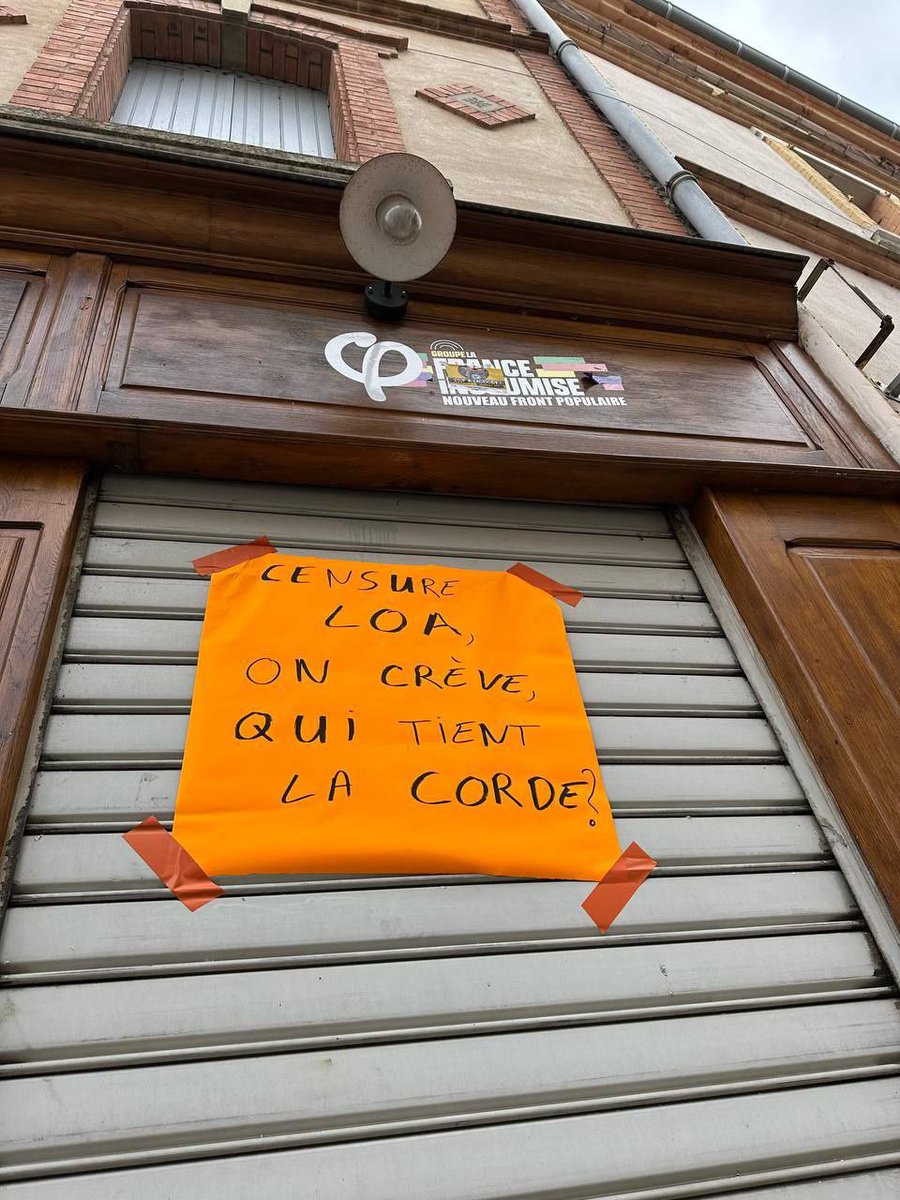 φ
GROUPE LA
FRANCE
INSOUMISE
NOUVEAU FRONT POPULAIRE
CENSURE
LOA,
ON CRÈVE,
QUi TiENT
LA CORDE?